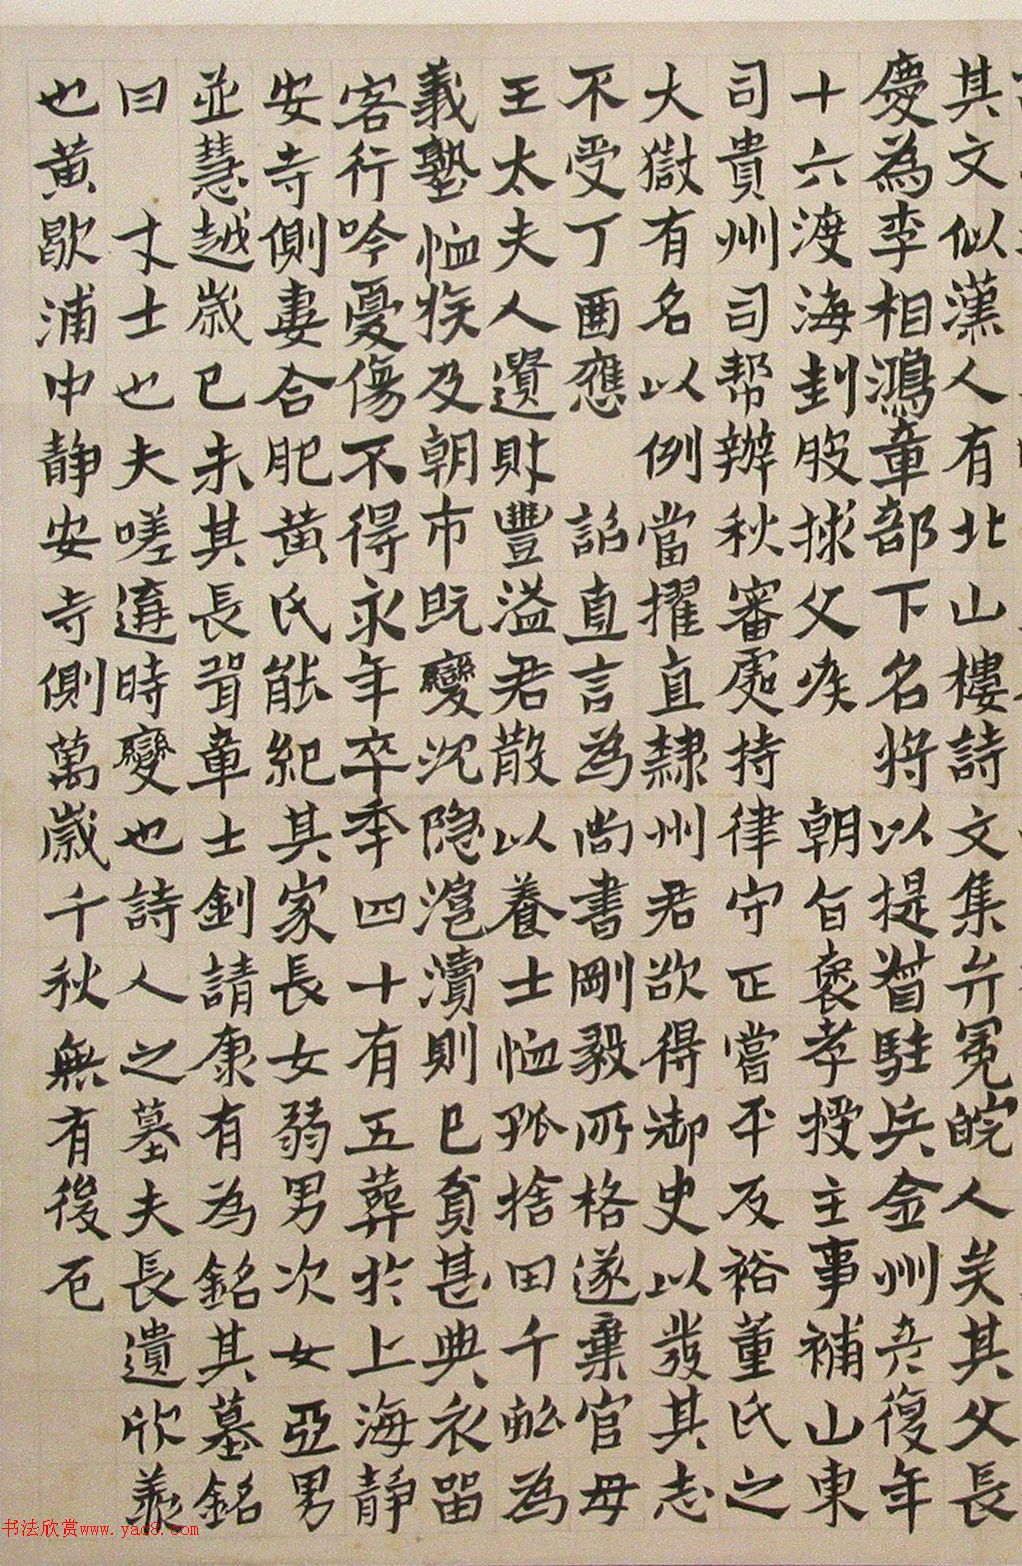 其文似漢人有北山樓詩文集弁冕皖人矣其父長
慶為李相鴻章部下名将以提督駐兵金州𠫵復年
十六渡海刲股捄父疾 朝旨褒孝授主事補山東
司貴州司帮辦秋審處持律守正嘗平反裕董氏之
大獄有名以例當擢直隸州君欲得御史以發其志
不受丁酉應 詔直言為尚書剛毅所格遂棄官母
王太夫人遺財豐溢君散以養士恤孤捨田千畝為
義塾恤族及朝市既變沉隐滬瀆則已貧甚典衣留
客行吟憂傷不得永年卒年四十有五葬於上海静
安寺側妻合肥黄氏能紀其家長女弱男次女亞男
並慧越歲已未其長壻章士釗請康有為銘其墓銘
曰 丈士也夫嗟遘時變也詩人之墓夫長遺欣羨
也黄歇浦中静安寺側萬歲千秋無有後厄
书法欣赏www.yac8.com